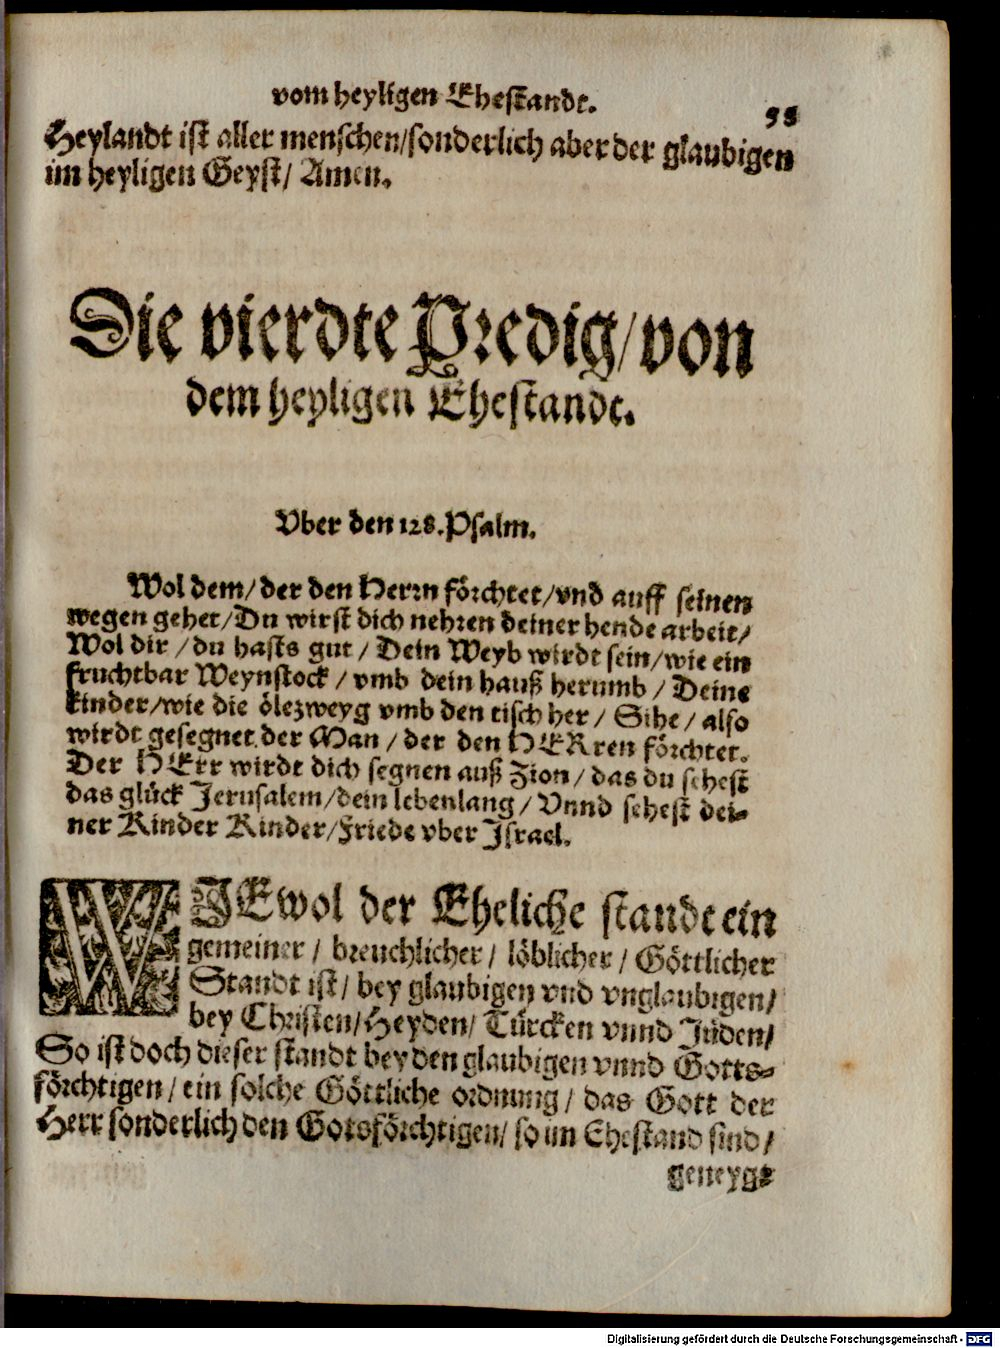 vom heyligen Ehestandt.
58
Heylandt ist aller menschen/sonderlich aber der glaubigen
im heyligen Geyst/ Amen.
Die vierdte Predig/von
dem heyligen Ehestandt.
Vber den 128.Psalm.
Wol dem/der den Herrn förchtet/vnd auff seinen
wegen gehet/Du wirst dich nehren deiner hende arbeit/
Wol dir /du hasts gut / Dein Weyb wirdt sein/wie ein
fruchtbar Weynstock / vmb dein hauß herumb / Deine
kinder/wie die ölezweyg vmb den tisch her / Sihe / also
wirdt gesegnet der Man / der den HERren förchtet.
Der HErr wirdt dich segnen auß Zion / das du sehest
das glück Jerusalem/dein lebenlang / Vnnd sehest dei-
ner Kinder Kinder/Friede vber Israel.
WIEwol der Eheliche standt ein
gemeiner / breuchlicher / löblicher / Göttlicher
Standt ist/ bey glaubigen vnd vnglaubigen/
bey Christen/Heyden/ Türcken vnnd Jüden/
So ist doch dieser standt bey den glaubigen vnnd Gotts-
förchtigen / ein solche Göttliche ordnung / das Gott der
Herr sonderlich den Gotsförchtigen/ so im Ehestand sind/
geneygt
Digitalisierung gefördert durch die Deutsche Forschungsgemeinschaft - DFG